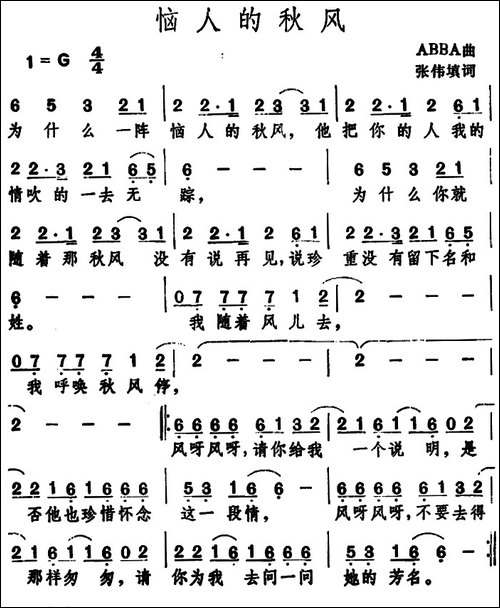 恼人的秋风
1=G 4/4
ABBA曲
张伟填词
6 5 3 21 | 2 2·1 23 31 | 2 2·1 2 61 |
为什么一阵 恼人的秋风，他把你的人我的
2 2·3 21 65 | 6 - - - | 6 5 3 21 |
情吹的一去无 踪， 为什么你就
2 2·1 23 31 | 2 2·1 2 61 | 2 2·3 21 65 |
随着那秋风 没有说再见，说珍 重没有留下名和
6 - - - | 07 77 7 1 2 | 2 - - - |
姓。 我随着风儿去，
07 77 7 1 2 | 2 - - - | 2 - - - |
我呼唤秋风停，
2 - - - |: 66 66 61 32 | 21 61 16 02 |
风呀风呀，请你给我 一个说 明，是
22 16 16 16 | 53 1 2 16 6 - | 66 66 61 32 |
否他也珍惜怀念 这一段情， 风呀风呀，不要去得
21 61 16 02 | 22 16 16 66 | 53 16 6 - :|
那样匆 匆，请 你为我 去问一问 她的 芳名。